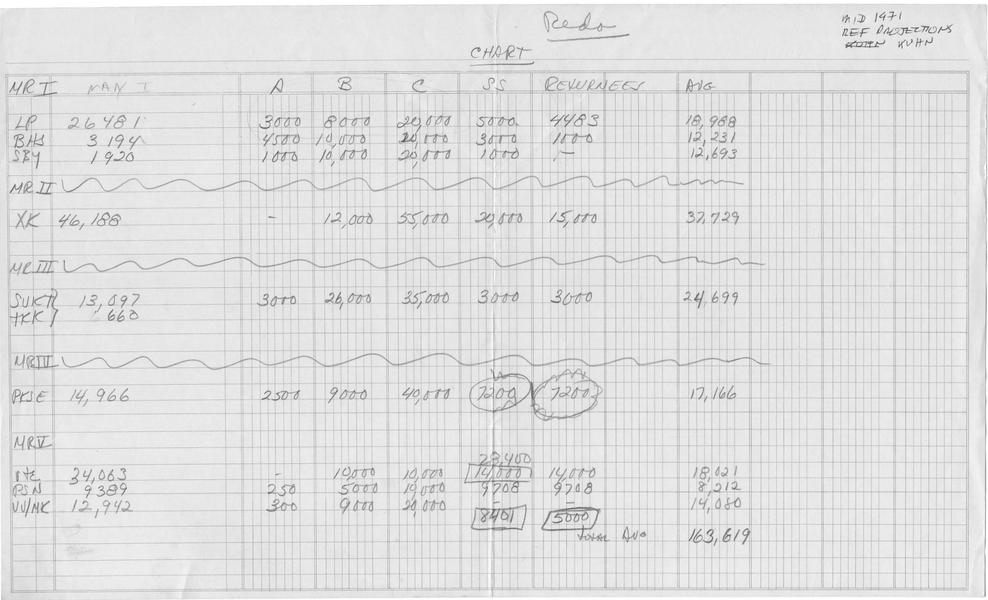 Redo
MID 1971
REF PROJECTIONS
KUHN
CHART
MR I MAN I A B C SS RETURNEES AVG
LP 26 481 3000 8000 20,000 5000 4483 18,988
BHS 3 194 4500 10,000 20,000 3000 1000 12,231
SBY 1 920 1000 10,000 20,000 1000 - 12,693
MR II
XK 46,188 - 12,000 55,000 20,000 15,000 37,729
MR III
SVKT 13,097 3000 26,000 35,000 3000 3000 24,699
TKK 660
MR IV
PKSE 14,966 2500 9000 40,000 7200 7200 17,166
MR V
28,400
34,063 - 10,000 10,000 14,000 14,000 18,021
PSN 9389 250 5000 10,000 9708 9708 8,212
VV/MK 12,942 300 9000 20,000 - - 14,080
8401 5000
TOTAL AVG 163,619